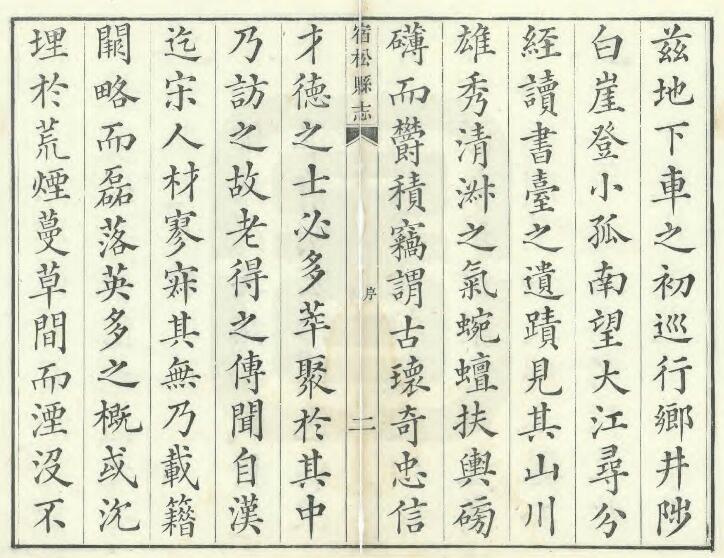 茲地下車之初巡行鄉井陟
白崖登小孤南望大江尋分
經讀書臺之遺蹟見其山川
雄秀清淑之氣蜿蟺扶輿磅
礴而欝積竊謂古瓌奇忠信
宿松縣志
序
二
才德之士必多萃聚於其中
乃訪之故老得之傳聞自漢
迄宋人材寥寂其無乃載籍
闕略而磊落英多之概或沉
埋於荒煙蔓草間而湮沒不